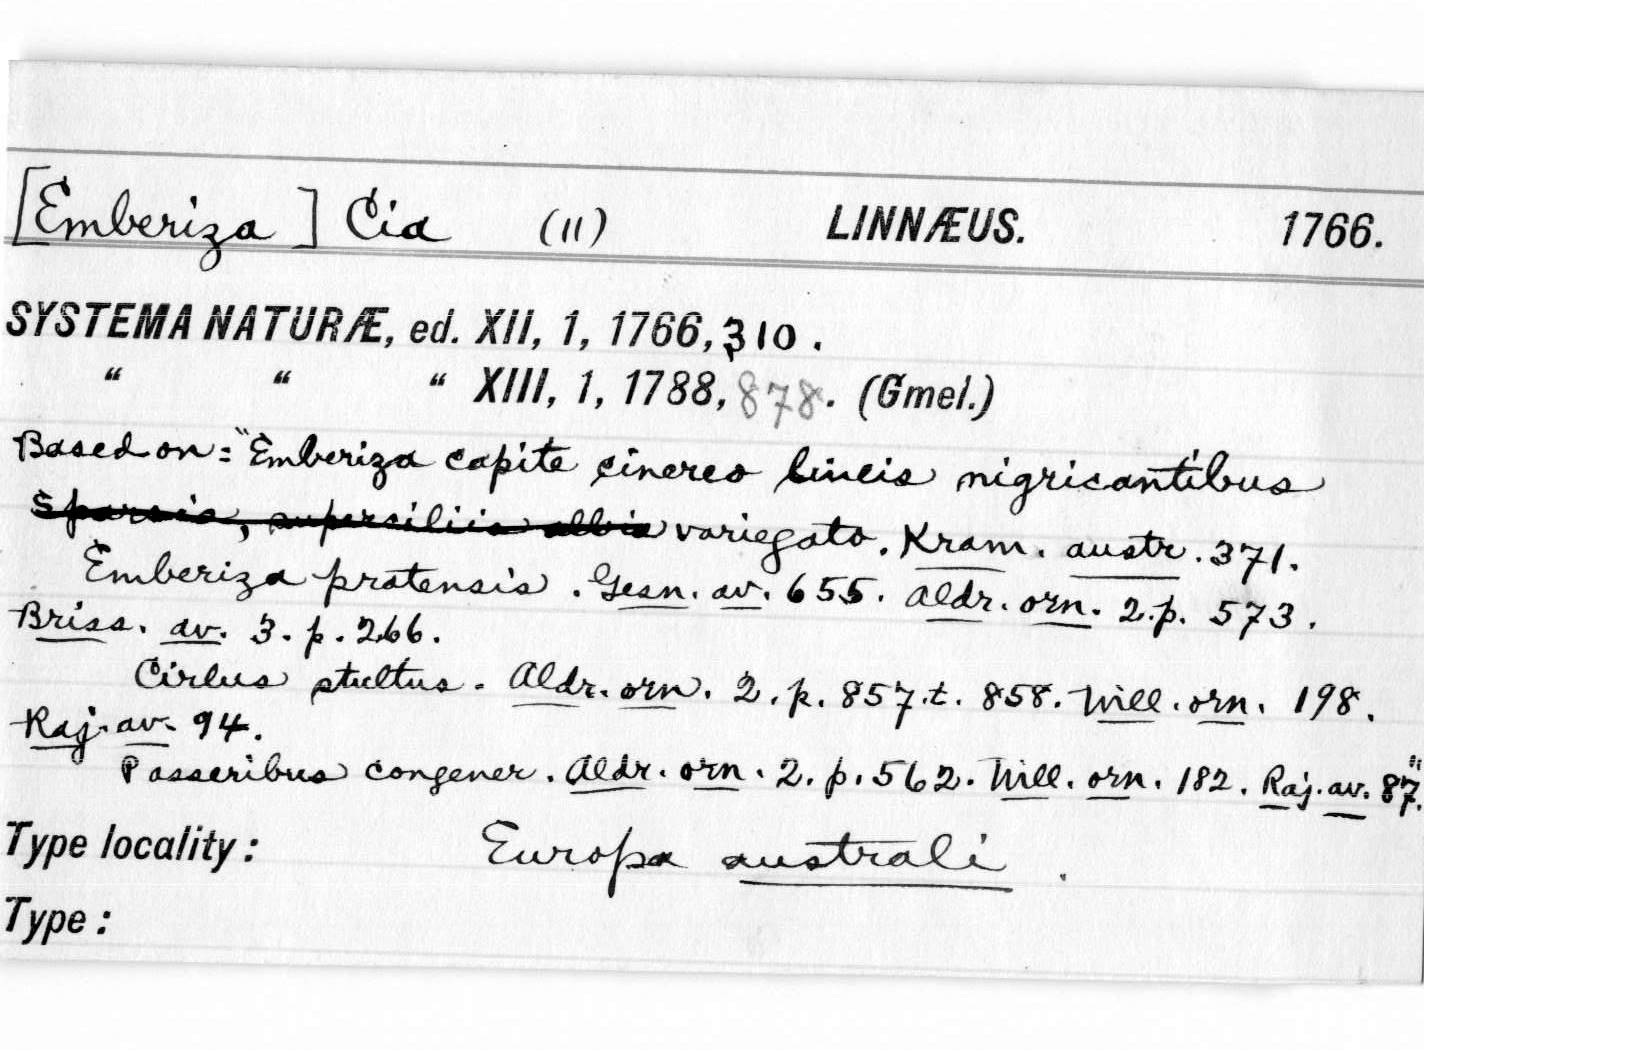 [Emberiza] Cia (11) LINNÆUS. 1766.
SYSTEMA NATURÆ, ed. XII, 1, 1766, 310.
“ “ “ XIII, 1, 1788, 878. (Gmel.)
Based on: "Emberiza capite cinereo lineis nigricantibus
sparsis, superciliis albis variegato. Kram. austr. 371.
Emberiza pratensis. Gesn. av. 655. Aldr. orn. 2. p. 573.
Briss. av. 3. p. 266.
Cirlus stultus. Aldr. orn. 2. p. 857. t. 858. Will. orn. 198.
Raj. av. 94.
Passeribus congener. Aldr. orn. 2. p. 562. Will. orn. 182. Raj. av. 87."
Type locality: Europa australi.
Type: